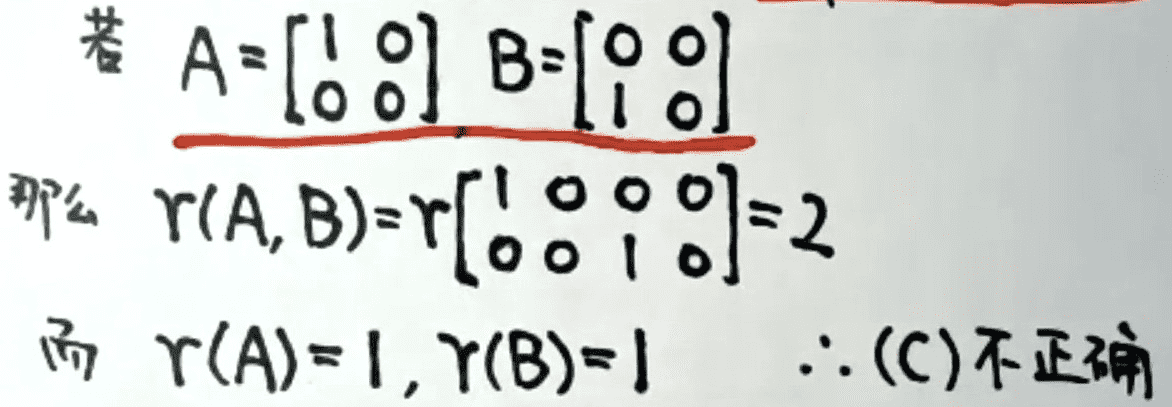 若 A=[1 0 0 0] B=[0 0 1 0]
那么 r(A,B)=r[1 0 0 0 0 0 1 0]=2
而 r(A)=1, r(B)=1 ∴(C)不正确